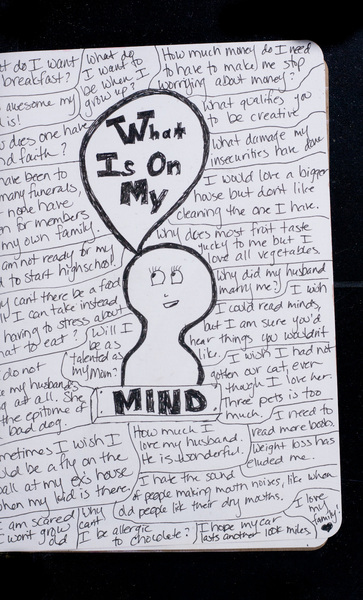 What
Is On
My
MIND
t do I want
breakfast?
What do
I want to
be when I
grow up?
How much money do I need
to have to make me stop
worrying about money?
awesome my
d is!
What qualifies you
to be creative
does one have
nd faith?
What damage my
insecurities have done
have been to
many funerals,
none have
en for members
my own family.
I would love a bigger
house but dont like
cleaning the one I have.
am not ready for my
d to start highschool.
Why does most fruit taste
yucky to me but I
love all vegetables.
y cant there be a food
I can take instead
having to stress about
hat to eat?
Why did my husband
marry me?
I wish
I could read minds,
but I am sure you'd
hear things you wouldn't
like.
Will I
be as
talented as
my mom?
I wish I had not
gotten our cat, even
though I love her.
Three pets is too
much.
do not
like my husbands
dog at all. She
the epitome of
bad dog.
I need to
read more books.
Weight loss has
eluded me.
metimes I wish I
uld be a fly on the
wall at my ex's house
when my kid is there.
How much I
love my husband.
He is wonderful.
I hate the sound
of people making mouth noises, like when
old people lick their dry mouths.
am scared
I wont grow
old
Why
cant
I be allergic
to chocolate?
I hope my car
lasts another 100k miles.
I love
my
family!